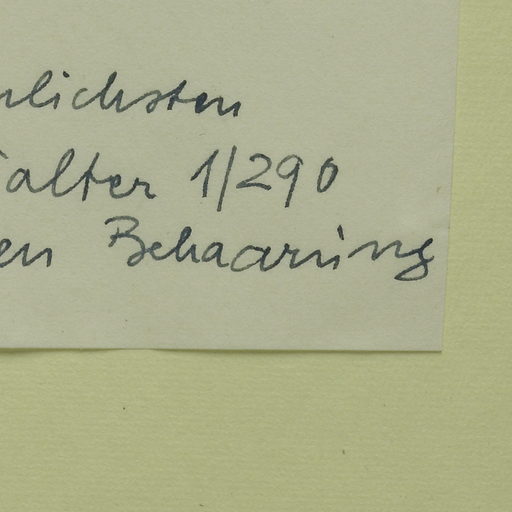 nlichsten
alter 1/290
en Behaarung